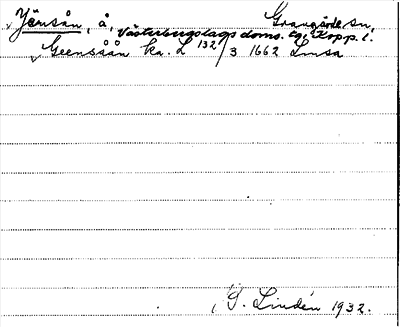 Jänsån, å, Grangärde sn,
Västerbergslags doms. Kopp. l.
Geensåån ka. L 132/3 1662 Lmsa
G. Lindén 1932.